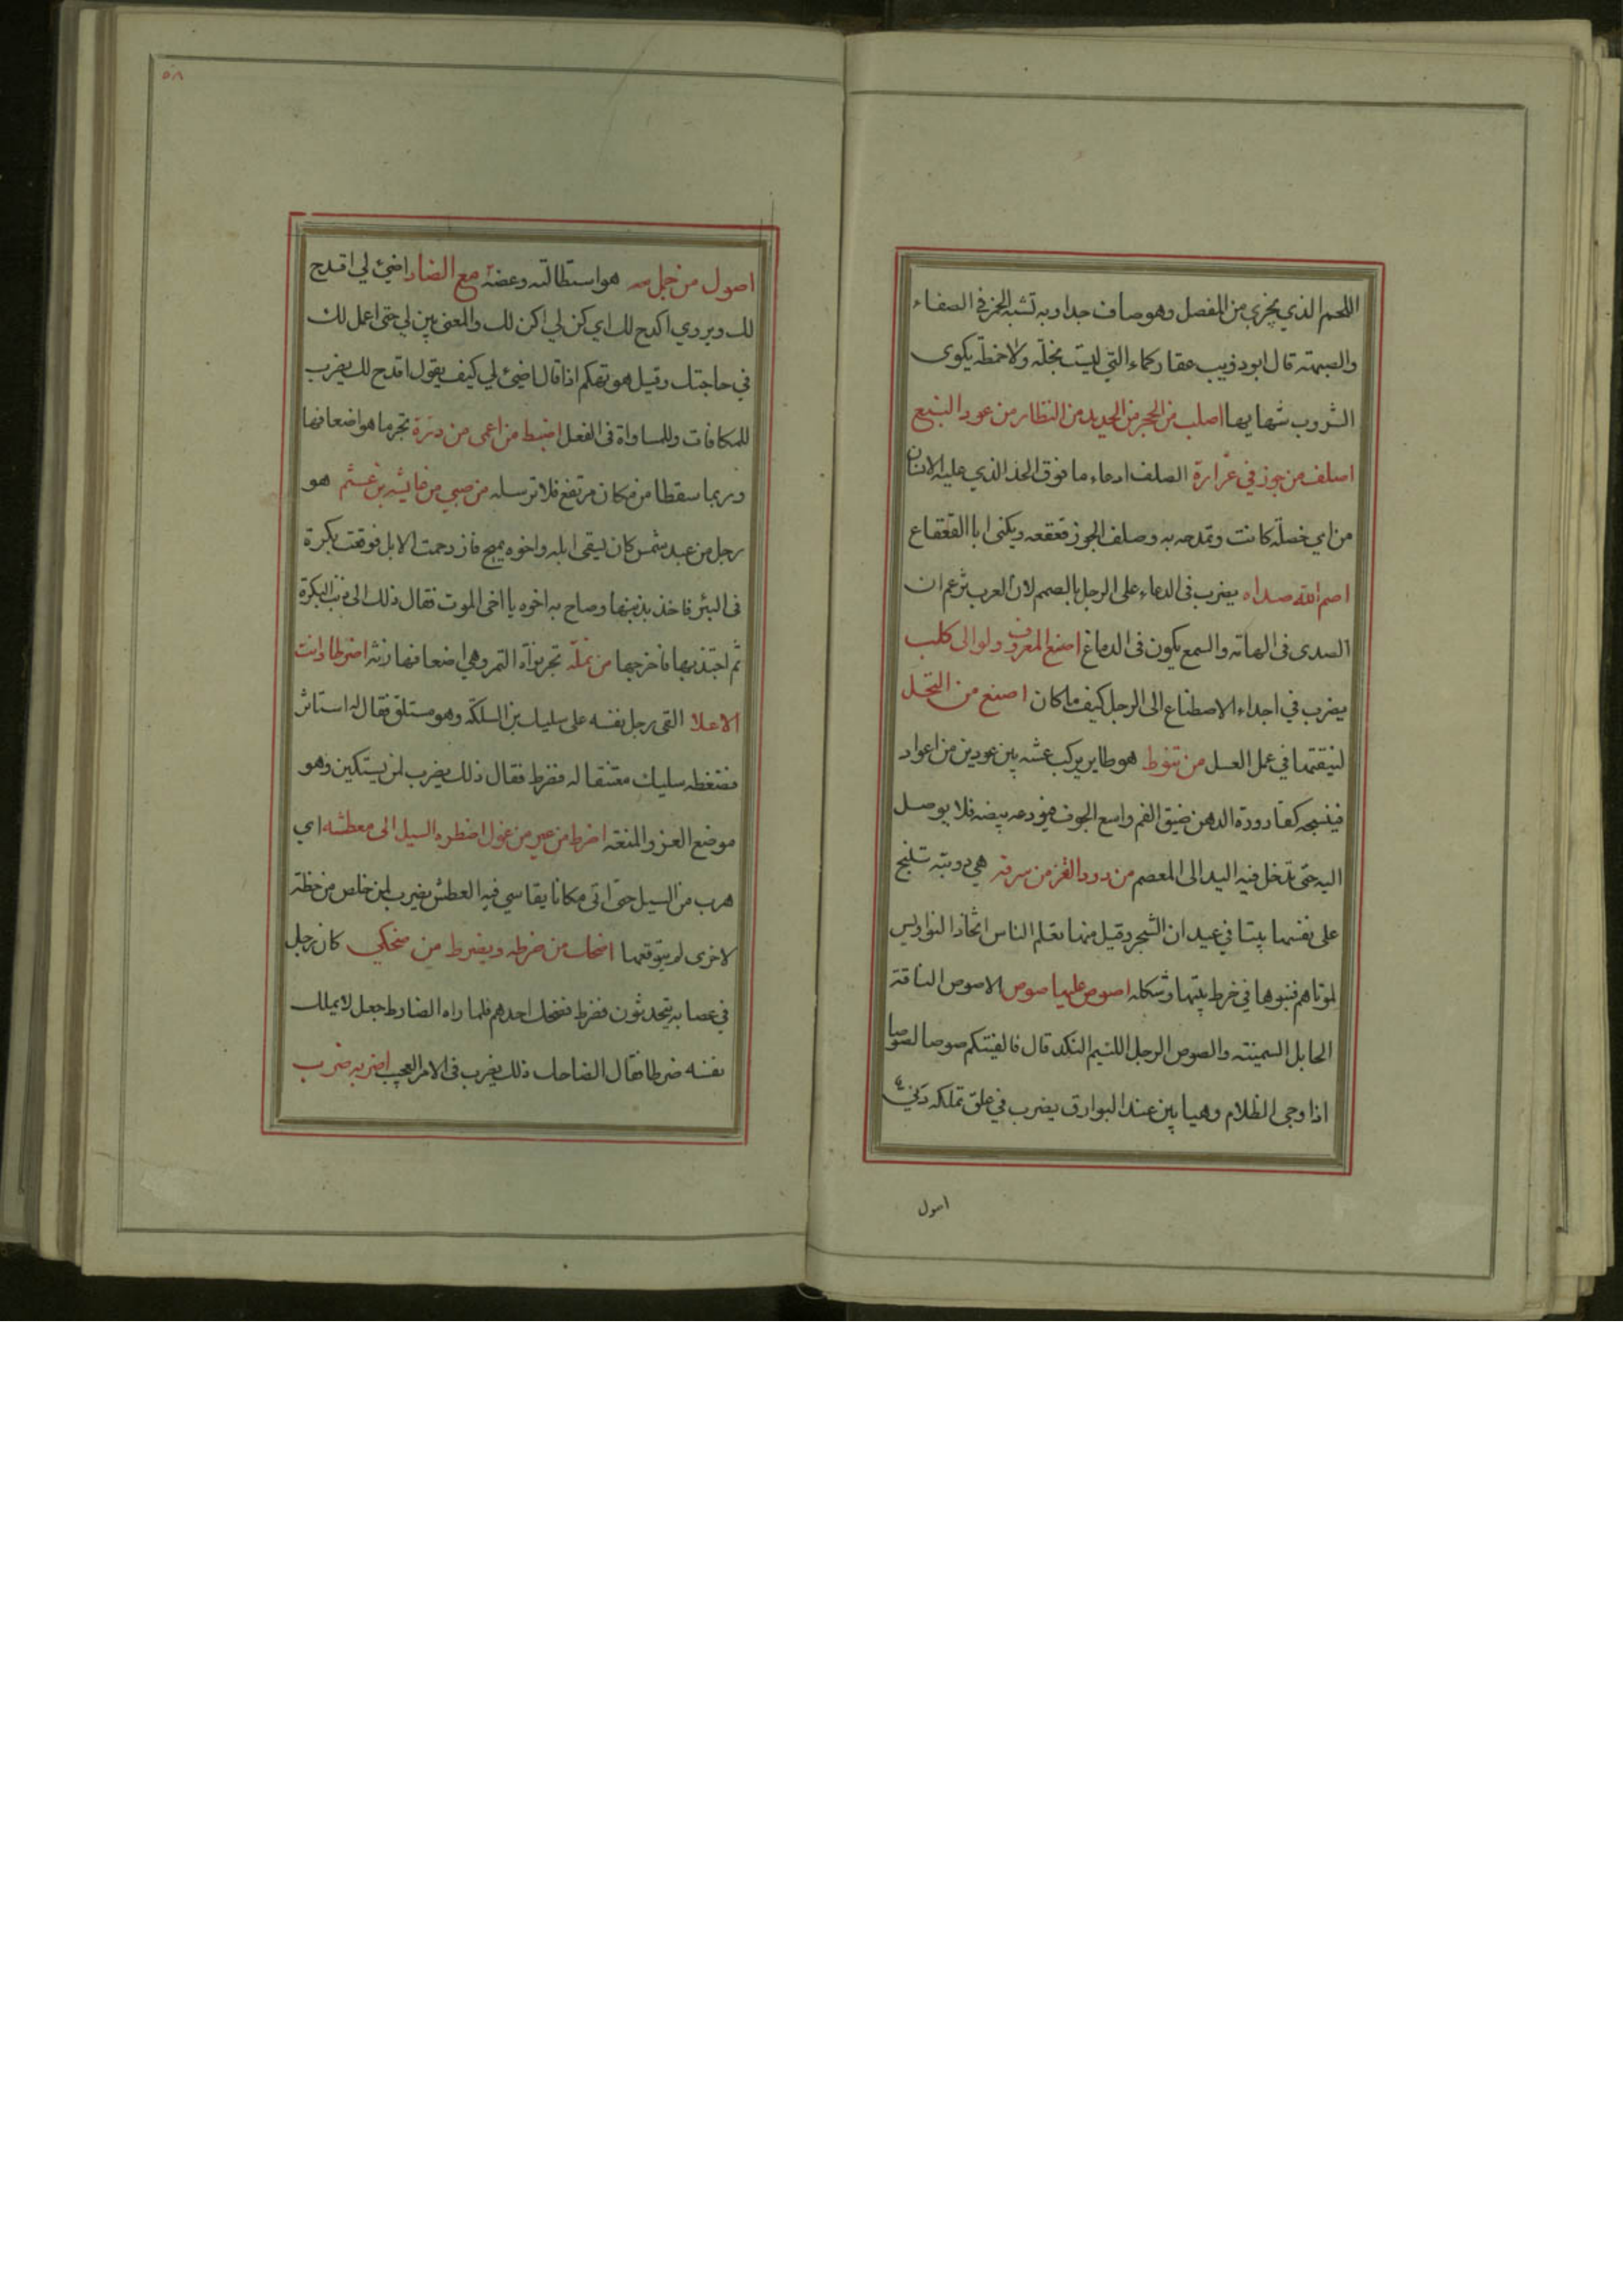 اللحم الذي يجري من المفصل وهو صاف جدا وبه تشبه الخمر في الصفاء
والصهبة قال ابو ذويب عقار كماء التي ليست بخلة ولا خمطة يكوى
الشروب شهابها اصلب من الحجر من الحديد من النظار من عود النبع
اصلف من جوز في غرارة الصلف ادعاء ما فوق الحد الذي عليه الانسان
من اي خصلة كانت وتمدحه به وصلف الجوز قعقعه ويكنى ابا القعقاع
اصم الله صداه يضرب في الدعاء على الرجل بالصمم لان العرب تزعم ان
الصدى في الهامة والسمع يكون في الدماغ اصنع المعروف ولو الى كلب
يضرب في اجداء الاصطناع الى الرجل كيف ما كان اصنع من النحل
لنيقتها في عمل العسل من تنوط هو طاير يركب عشه بين عودين من اعواد
فينسجه كقارورة الدهن ضيق الفم واسع الجوف فيودعه بيضه فلا يوصل
اليه حتى تدخل فيه اليد الى المعصم من دود القز من سرفة هي دويبة تنسج
على نفسها بيتا في عيدان الشجر وقيل منها تعلم الناس اتخاذ النواويس
لموتاهم فبنوها في خرط بيتها وشكله اصوص عليها صوص الاصوص الناقة
الحايل السمينة والصوص الرجل اللئيم النكد قال فالفيتكم صوصا لصوصا
اذا دجى الظلام وهيابين عند البوارق يضرب في علق تملكه دني
اصول
٥٨
اصول من جمل هو استطالته وعضه مع الضاد اضئ لي اقدح
لك ويروي اكدح لك اي كن لي اكن لك والمعنى بين لي حتى اعمل لك
في حاجتك وقيل هو تهكم اذا قال اضئ لي كيف يقول اقدح لك يضرب
للمكافات والمساواة في الفعل اضبط من اعمى من ذرة تجر ما هو اضعافها
وربما سقطا من مكان مرتفع فلا ترسله من صبي من عايشة بن عثم هو
رجل من عبد شمس كان يسقى ابله واخوه يميح فازدحمت الابل فوقعت بكرة
في البئر فاخذ بذنبها وصاح به اخوه يا اخى الموت فقال ذلك الى ذنب البكرة
ثم اجتذبها فاخرجها من نملة تجر نواة التمر وهي اضعافها زنة اضرطا وانت
الاعلا القى رجل نفسه على سليك بن السلكة وهو مستلق فقال له استاثر
فضغطه سليك معتنقا له فضرط فقال ذلك يضرب لمن يستكين وهو
موضع العز والمنعة اضرط من عير من غول اضطره السيل الى معطشه اي
هرب من السيل حتى اتى مكانا يقاسي فيه العطش يضرب لمن خلص من خطة
لاخرى لم يتوقعها اضحك من ضرطه ويضرط من ضحكي كان رجل
في عصابة يتحدثون فضرط فضحك احدهم فلما راه الضارط جعل لا يملك
نفسه ضرطا فقال الضاحك ذلك يضرب في الامر العجيب اضربه ضرب